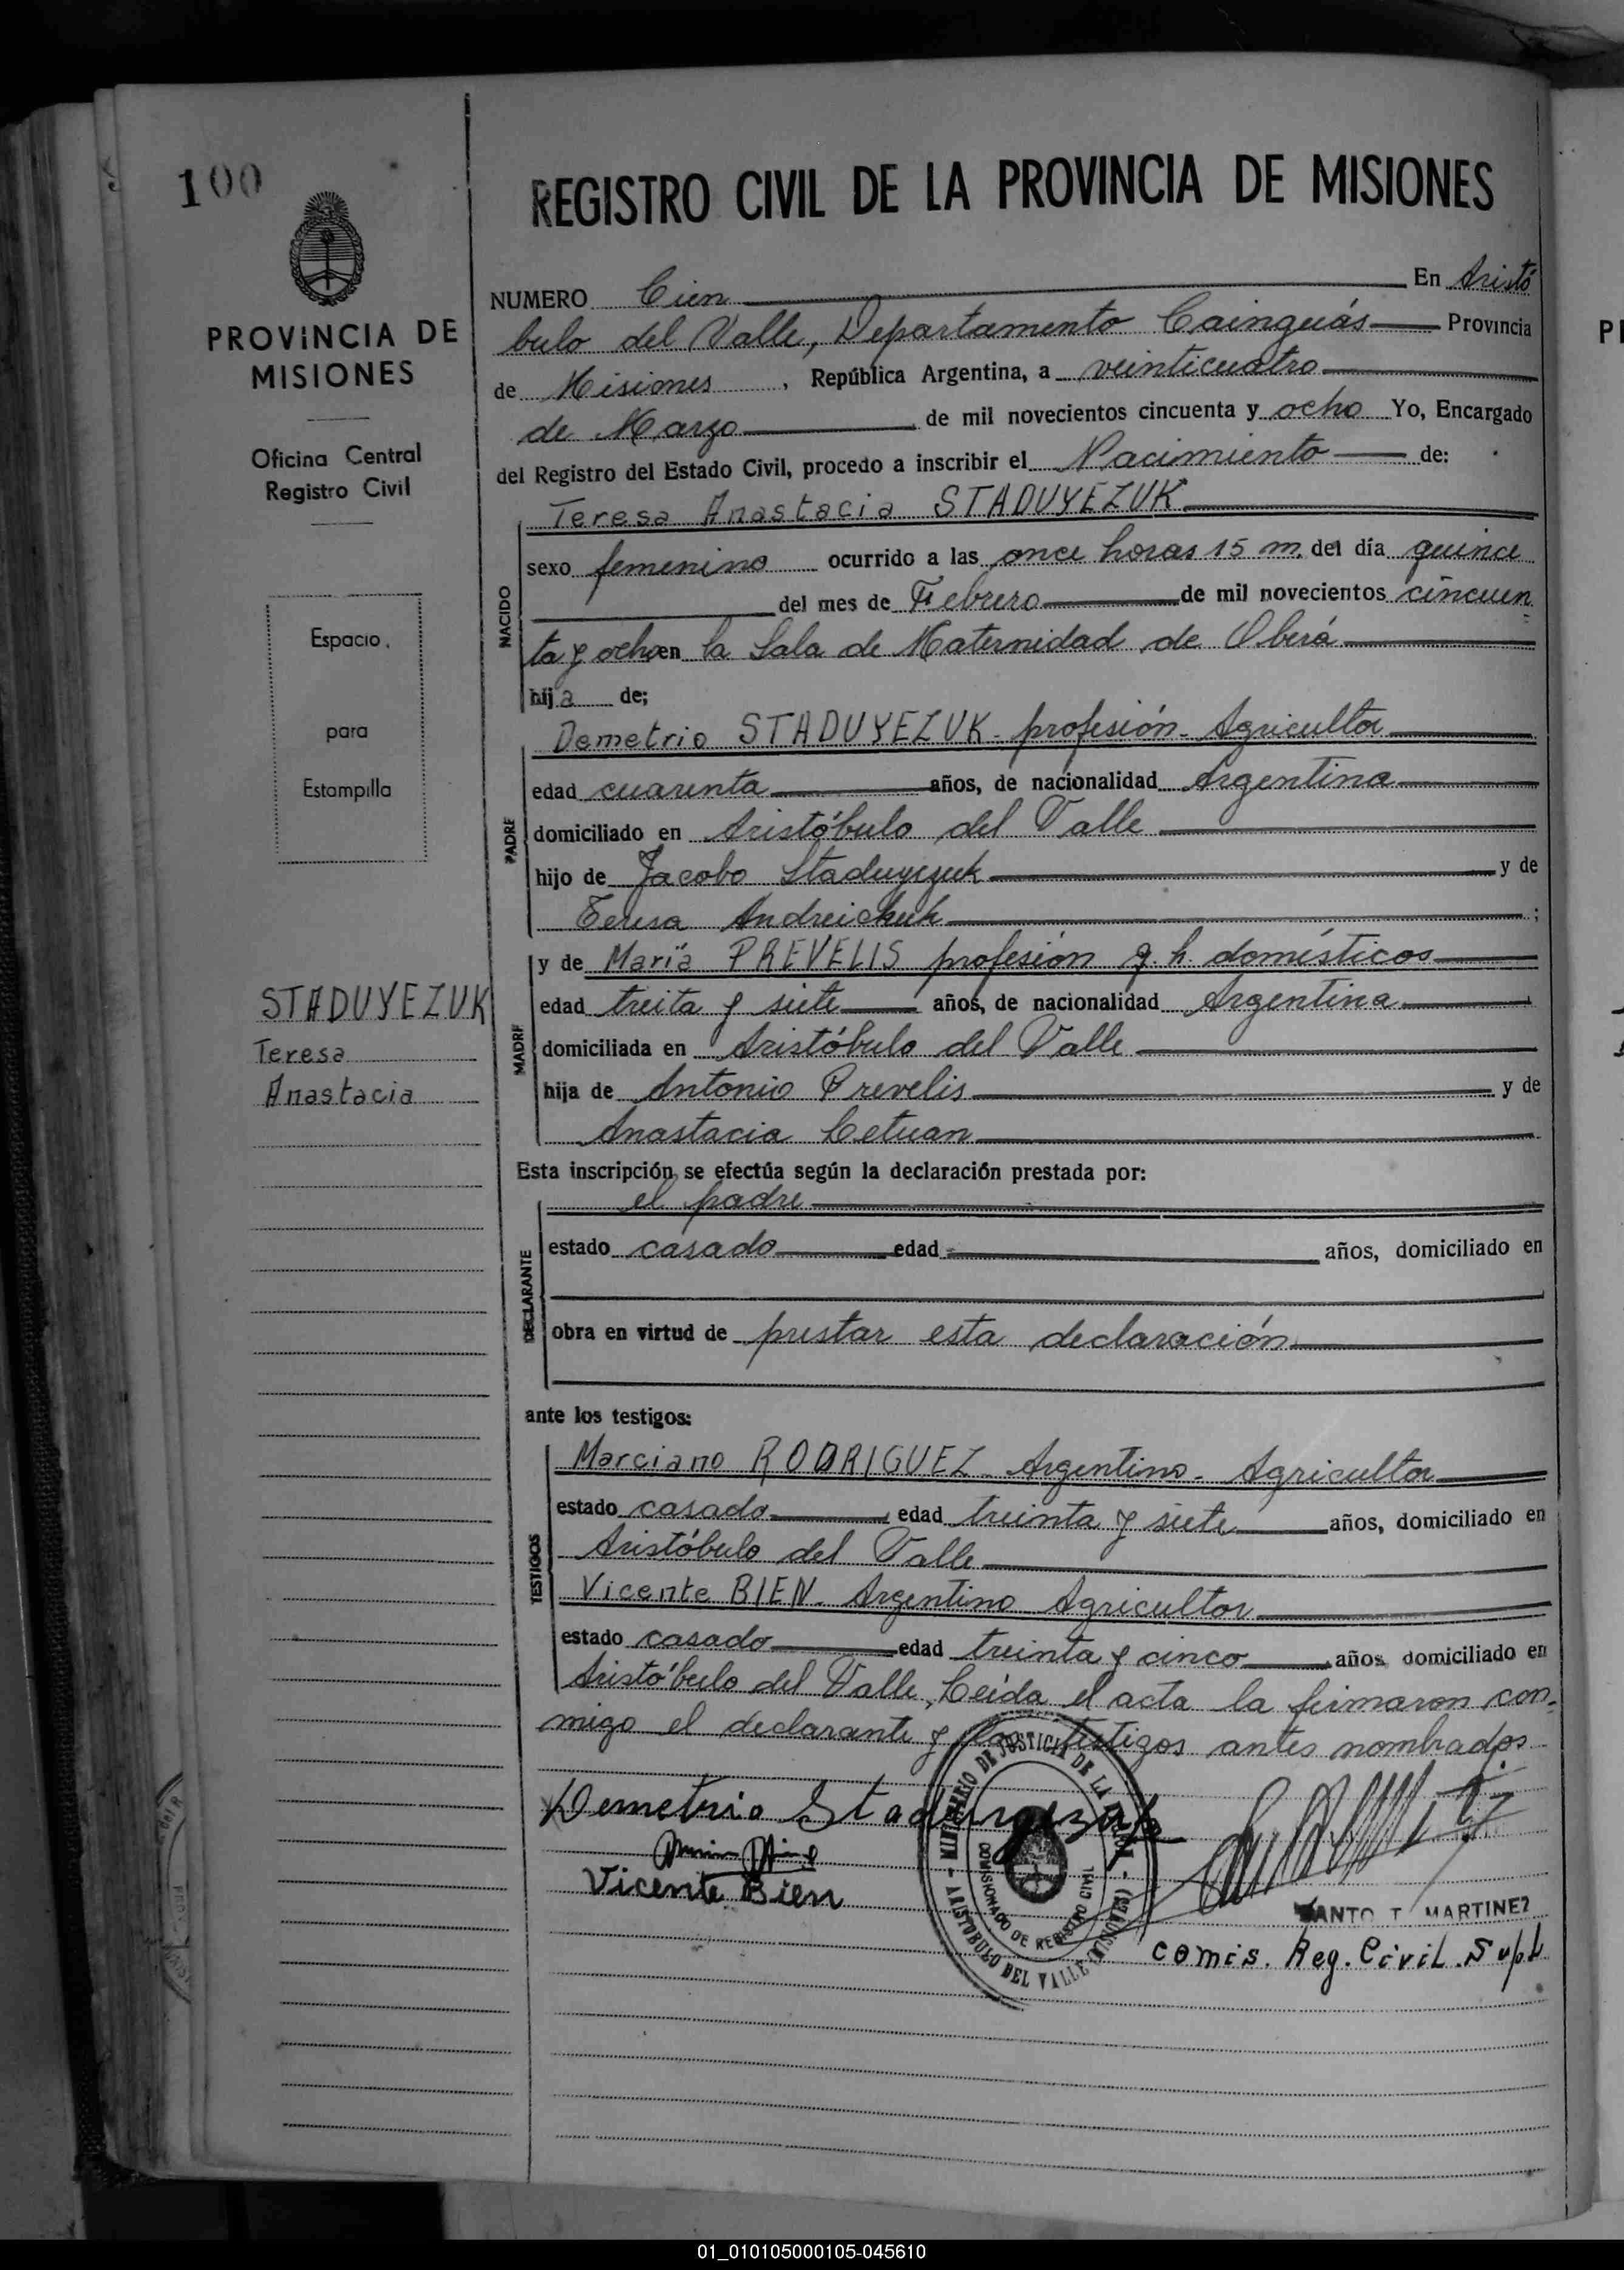 100
PROVINCIA DE
MISIONES
Oficina Central
Registro Civil
Espacio
para
Estampilla
STADUYEZUK
Teresa
Anastacia
REGISTRO CIVIL DE LA PROVINCIA DE MISIONES
NUMERO Cien En Aristó
bulo del Valle, Departamento Cainguás Provincia
de Misiones, República Argentina, a veinticuatro
de Marzo de mil novecientos cincuenta y ocho Yo, Encargado
del Registro del Estado Civil, procedo a inscribir el Nacimiento de:
Teresa Anastacia STADUYEZUK
NACIDO
sexo femenino ocurrido a las once horas 15 m. del día quince
del mes de Febrero de mil novecientos cincuen
ta y ocho en la Sala de Maternidad de Oberá
hija de;
Demetrio STADUYEZUK - profesión - Agricultor
PADRE
edad cuarenta años, de nacionalidad Argentina
domiciliado en Aristóbulo del Valle
hijo de Jacobo Staduyezuk y de
Teresa Andreichuk ;
y de María PREVELIS profesión q. h. domésticos
MADRE
edad treita y siete años, de nacionalidad Argentina
domiciliada en Aristóbulo del Valle
hija de Antonio Prevelis y de
Anastacia Cetuan
Esta inscripción se efectúa según la declaración prestada por:
el padre
DECLARANTE
estado casado edad años, domiciliado en
obra en virtud de prestar esta declaración
ante los testigos:
Marciano RODRIGUEZ - Argentino - Agricultor
TESTIGOS
estado casado edad treinta y siete años, domiciliado en
Aristóbulo del Valle
Vicente BIEN - Argentino Agricultor
estado casado edad treinta y cinco años domiciliado en
Aristóbulo del Valle, Leída el acta la firmaron con-
migo el declarante y los testigos antes nombrados
Demetrio Staduyezuk
Vicente Bien
MINISTERIO DE JUSTICIA DE LA
COMISIONADO DE REGISTRO CIVIL
ARISTOBULO DEL VALLE (MISIONES)
SANTO T. MARTINEZ
Comis. Reg. Civil. Supl
01_010105000105-045610